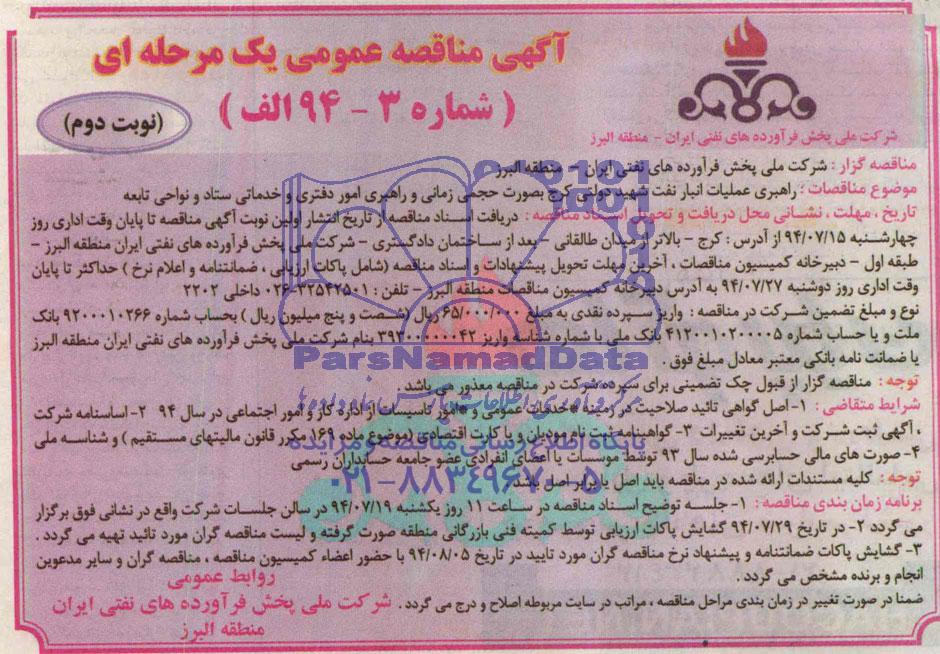 آگهی مناقصه عمومی یک مرحله ای
( شماره ۳ - ۹۴ الف )
(نوبت دوم)
شرکت ملی پخش فرآورده های نفتی ایران - منطقه البرز
مناقصه گزار : شرکت ملی پخش فرآورده های نفتی ایران - منطقه البرز
موضوع مناقصات : راهبری عملیات انبار نفت شهید دولتی کرج بصورت حجمی زمانی و راهبری امور دفتری و خدماتی ستاد و نواحی تابعه
تاریخ ، مهلت ، نشانی محل دریافت و تحویل اسناد مناقصه : دریافت اسناد مناقصه از تاریخ انتشار اولین نوبت آگهی مناقصه تا پایان وقت اداری روز
چهارشنبه ۹۴/۰۷/۱۵ از آدرس : کرج - بالاتر از میدان طالقانی - بعد از ساختمان دادگستری - شرکت ملی پخش فرآورده های نفتی ایران منطقه البرز -
طبقه اول - دبیرخانه کمیسیون مناقصات ، آخرین مهلت تحویل پیشنهادات و اسناد مناقصه (شامل پاکات ارزیابی ، ضمانتنامه و اعلام نرخ ) حداکثر تا پایان
وقت اداری روز دوشنبه ۹۴/۰۷/۲۷ به آدرس دبیرخانه کمیسیون مناقصات منطقه البرز - تلفن : ۳۲۵۴۲۵۰۱-۰۲۶ داخلی ۲۲۰۲
نوع و مبلغ تضمین شرکت در مناقصه : واریز سپرده نقدی به مبلغ ۶۵/۰۰۰/۰۰۰ ریال (شصت و پنج میلیون ریال ) بحساب شماره ۹۲۰۰۰۱۰۲۶۶ بانک
ملت و یا حساب شماره ۴۱۲۰۰۱۰۲۰۰۰۰۵ بانک ملی با شماره شناسه واریز ۳۹۲۴۰۰۰۰۰۰۴۲ بنام شرکت ملی پخش فرآورده های نفتی ایران منطقه البرز
یا ضمانت نامه بانکی معتبر معادل مبلغ فوق .
توجه : مناقصه گزار از قبول چک تضمینی برای سپرده شرکت در مناقصه معذور می باشد .
شرایط متقاضی : ۱- اصل گواهی تائید صلاحیت در زمینه * خدمات عمومی و * امور تاسیسات از اداره کار و امور اجتماعی در سال ۹۴ ۲- اساسنامه شرکت
، آگهی ثبت شرکت و آخرین تغییرات ۳- گواهینامه ثبت نام مودیان و یا کارت اقتصادی (موضوع ماده ۱۶۹ مکرر قانون مالیتهای مستقیم ) و شناسه ملی
۴- صورت های مالی حسابرسی شده سال ۹۳ توسط موسسات یا اعضای انفرادی عضو جامعه حسابداران رسمی
توجه : کلیه مستندات ارائه شده در مناقصه باید اصل یا برابر اصل باشد
برنامه زمان بندی مناقصه : ۱- جلسه توضیح اسناد مناقصه در ساعت ۱۱ روز یکشنبه ۹۴/۰۷/۱۹ در سالن جلسات شرکت واقع در نشانی فوق برگزار
می گردد ۲- در تاریخ ۹۴/۰۷/۲۹ گشایش پاکات ارزیابی توسط کمیته فنی بازرگانی منطقه صورت گرفته و لیست مناقصه گران مورد تائید تهیه می گردد .
۳- گشایش پاکات ضمانتنامه و پیشنهاد نرخ مناقصه گران مورد تایید در تاریخ ۹۴/۰۸/۰۵ با حضور اعضاء کمیسیون مناقصه ، مناقصه گران و سایر مدعوین
انجام و برنده مشخص می گردد .
ضمنا در صورت تغییر در زمان بندی مراحل مناقصه ، مراتب در سایت مربوطه اصلاح و درج می گردد .
روابط عمومی
شرکت ملی پخش فرآورده های نفتی ایران
منطقه البرز
ParsNamadData
پایگاه اطلاع رسانی مناقصه و مزایده
۰۲۱-۸۸۳۴۹۶۷۰-۵